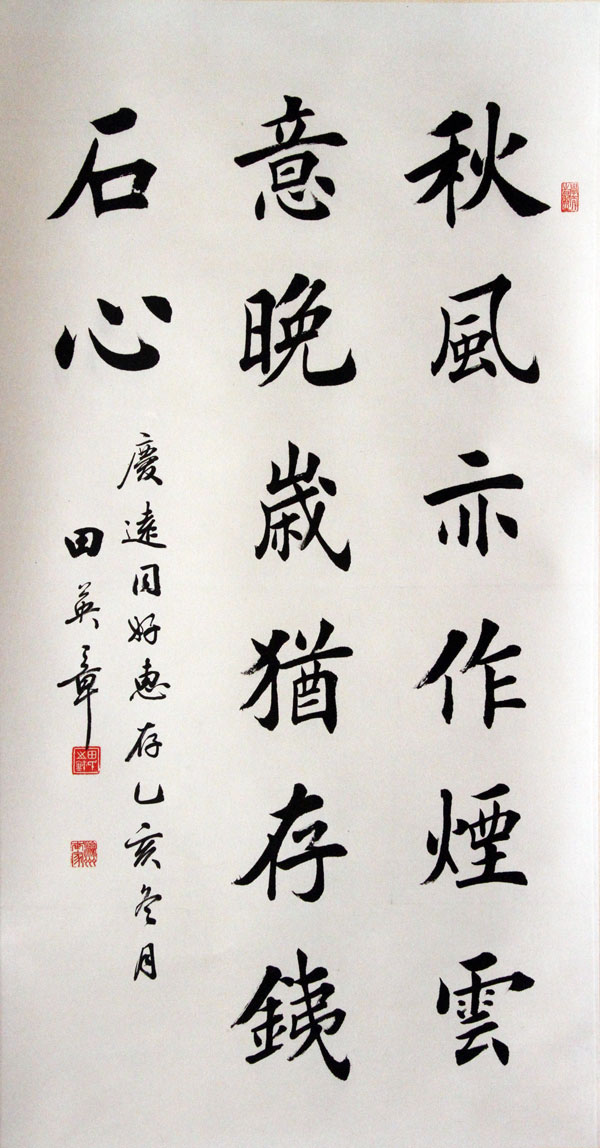 秋風亦作煙雲
意晚歲猶存銕
石心
慶遠同好惠存乙亥冬月
田英章